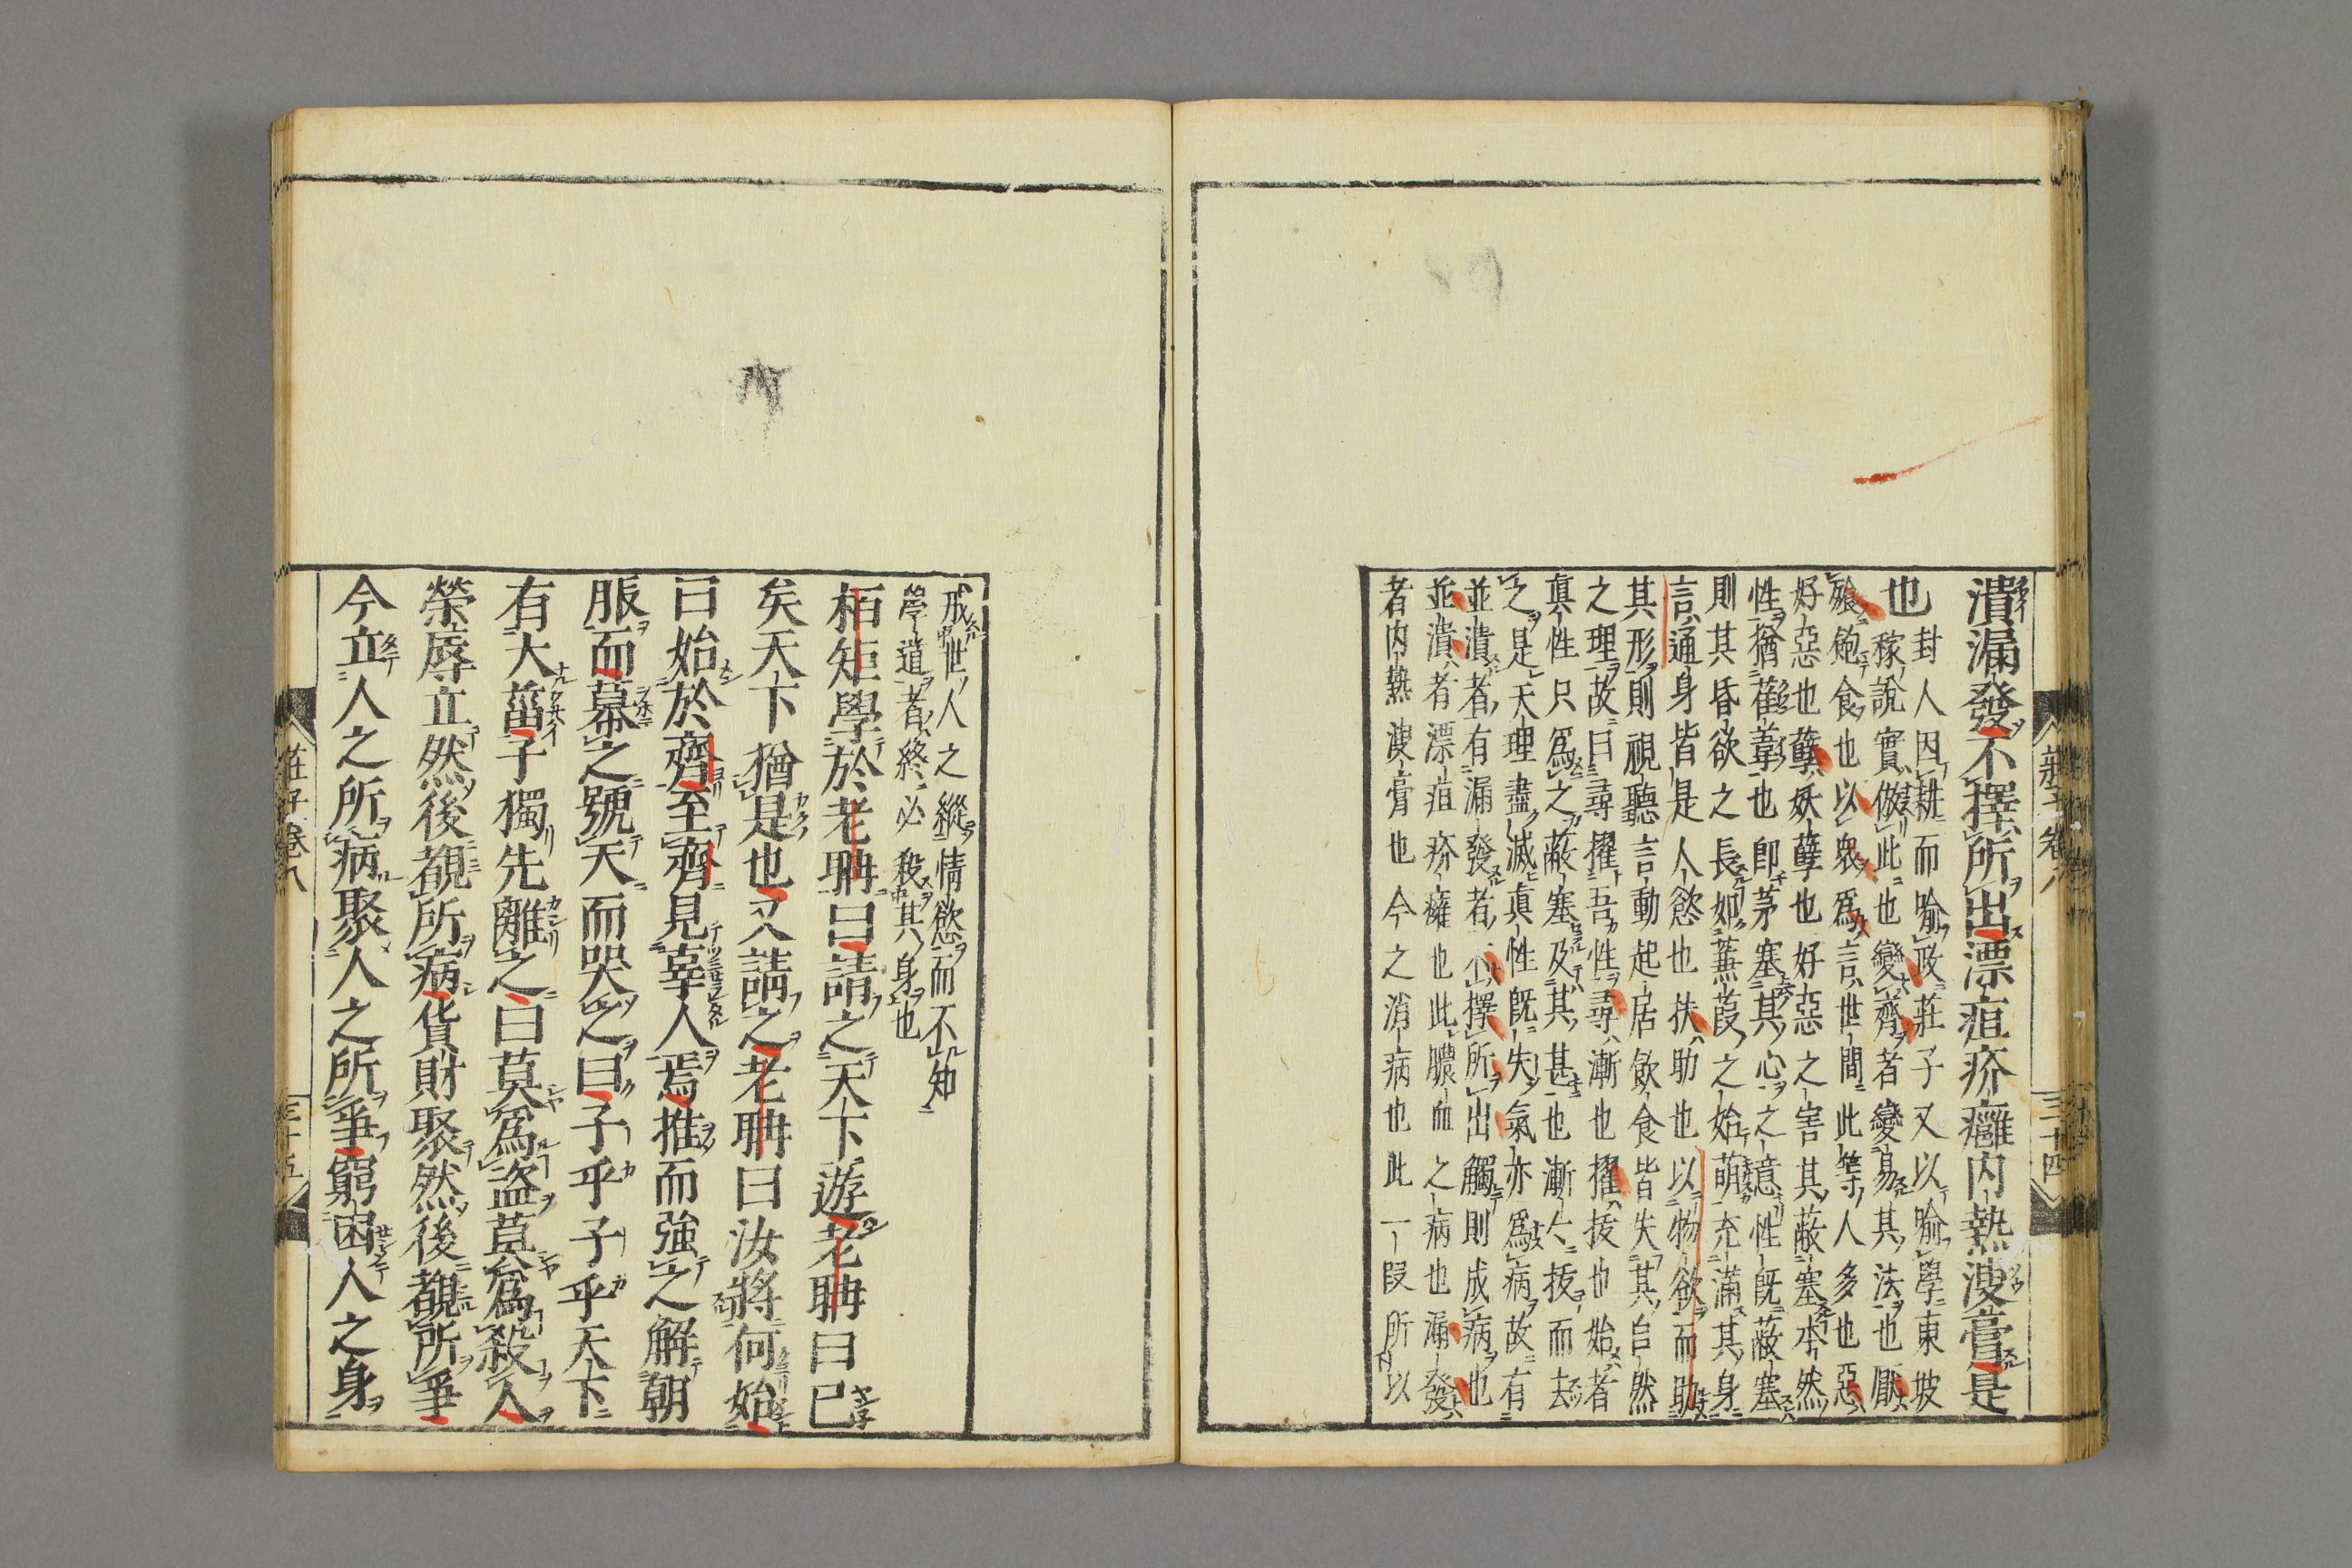 潰漏發不擇所出漂疽疥癰内熱溲膏是
也
封人因耕而喻政莊子又以喻學東坡
稼說實倣此也變齊者變易其法也厭
飱飽食也以衆爲言世間此等人多也惡
好惡也孽妖孽也好惡之害其蔽塞本然
性猶萑葦也即茅塞其心之意性既蔽塞
則其昏欲之長如蒹葭之始萌充滿其身
言通身皆是人慾也扶助也以物欲而助
其形則視聽言動起居飲食皆失其自然
之理故曰尋擢吾性尋漸也擢拔也始者
眞性只爲之蔽塞及其甚也漸々拔而去
之是天理盡滅眞性既失氣亦爲病故有
並潰者有漏發者不擇所出觸則成病也
並潰者漂疽疥癰也此膿血之病也漏發
者内熱溲膏也今之消病也此一段所以
戒世人之縱情慾而不知
學道者終必殺其身也
栢矩學於老聃曰請之天下遊老聃曰已
矣天下猶是也又請之老聃曰汝將何始
曰始於齊至齊見辜人焉推而強之解朝
服而幕之號天而哭之曰子乎子乎天下
有大菑子獨先離之曰莫爲盗莫爲殺人
榮辱立然後覩所病貨財聚然後覩所爭
今立人之所病聚人之所爭窮困人之身
莊子卷八
三十四
莊子卷八
三十五